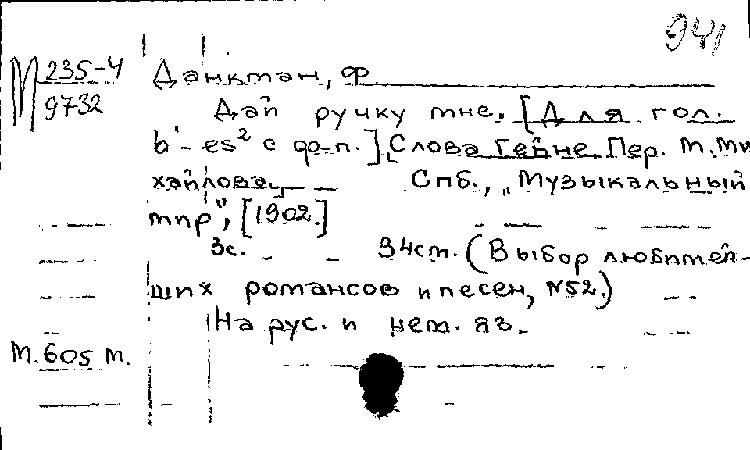 941
М 235-4
9732
Данкман, Ф
Дай ручку мне. [Для гол.
b'-es² с ф-п.] Слова Гейне Пер. М. Ми
хайлова. Спб., "Музыкальный
мир", [1902.]
3с. 34см. (Выбор любимей-
ших романсов и песен, №52.)
На рус. и нем. яз.
М. 605 М.